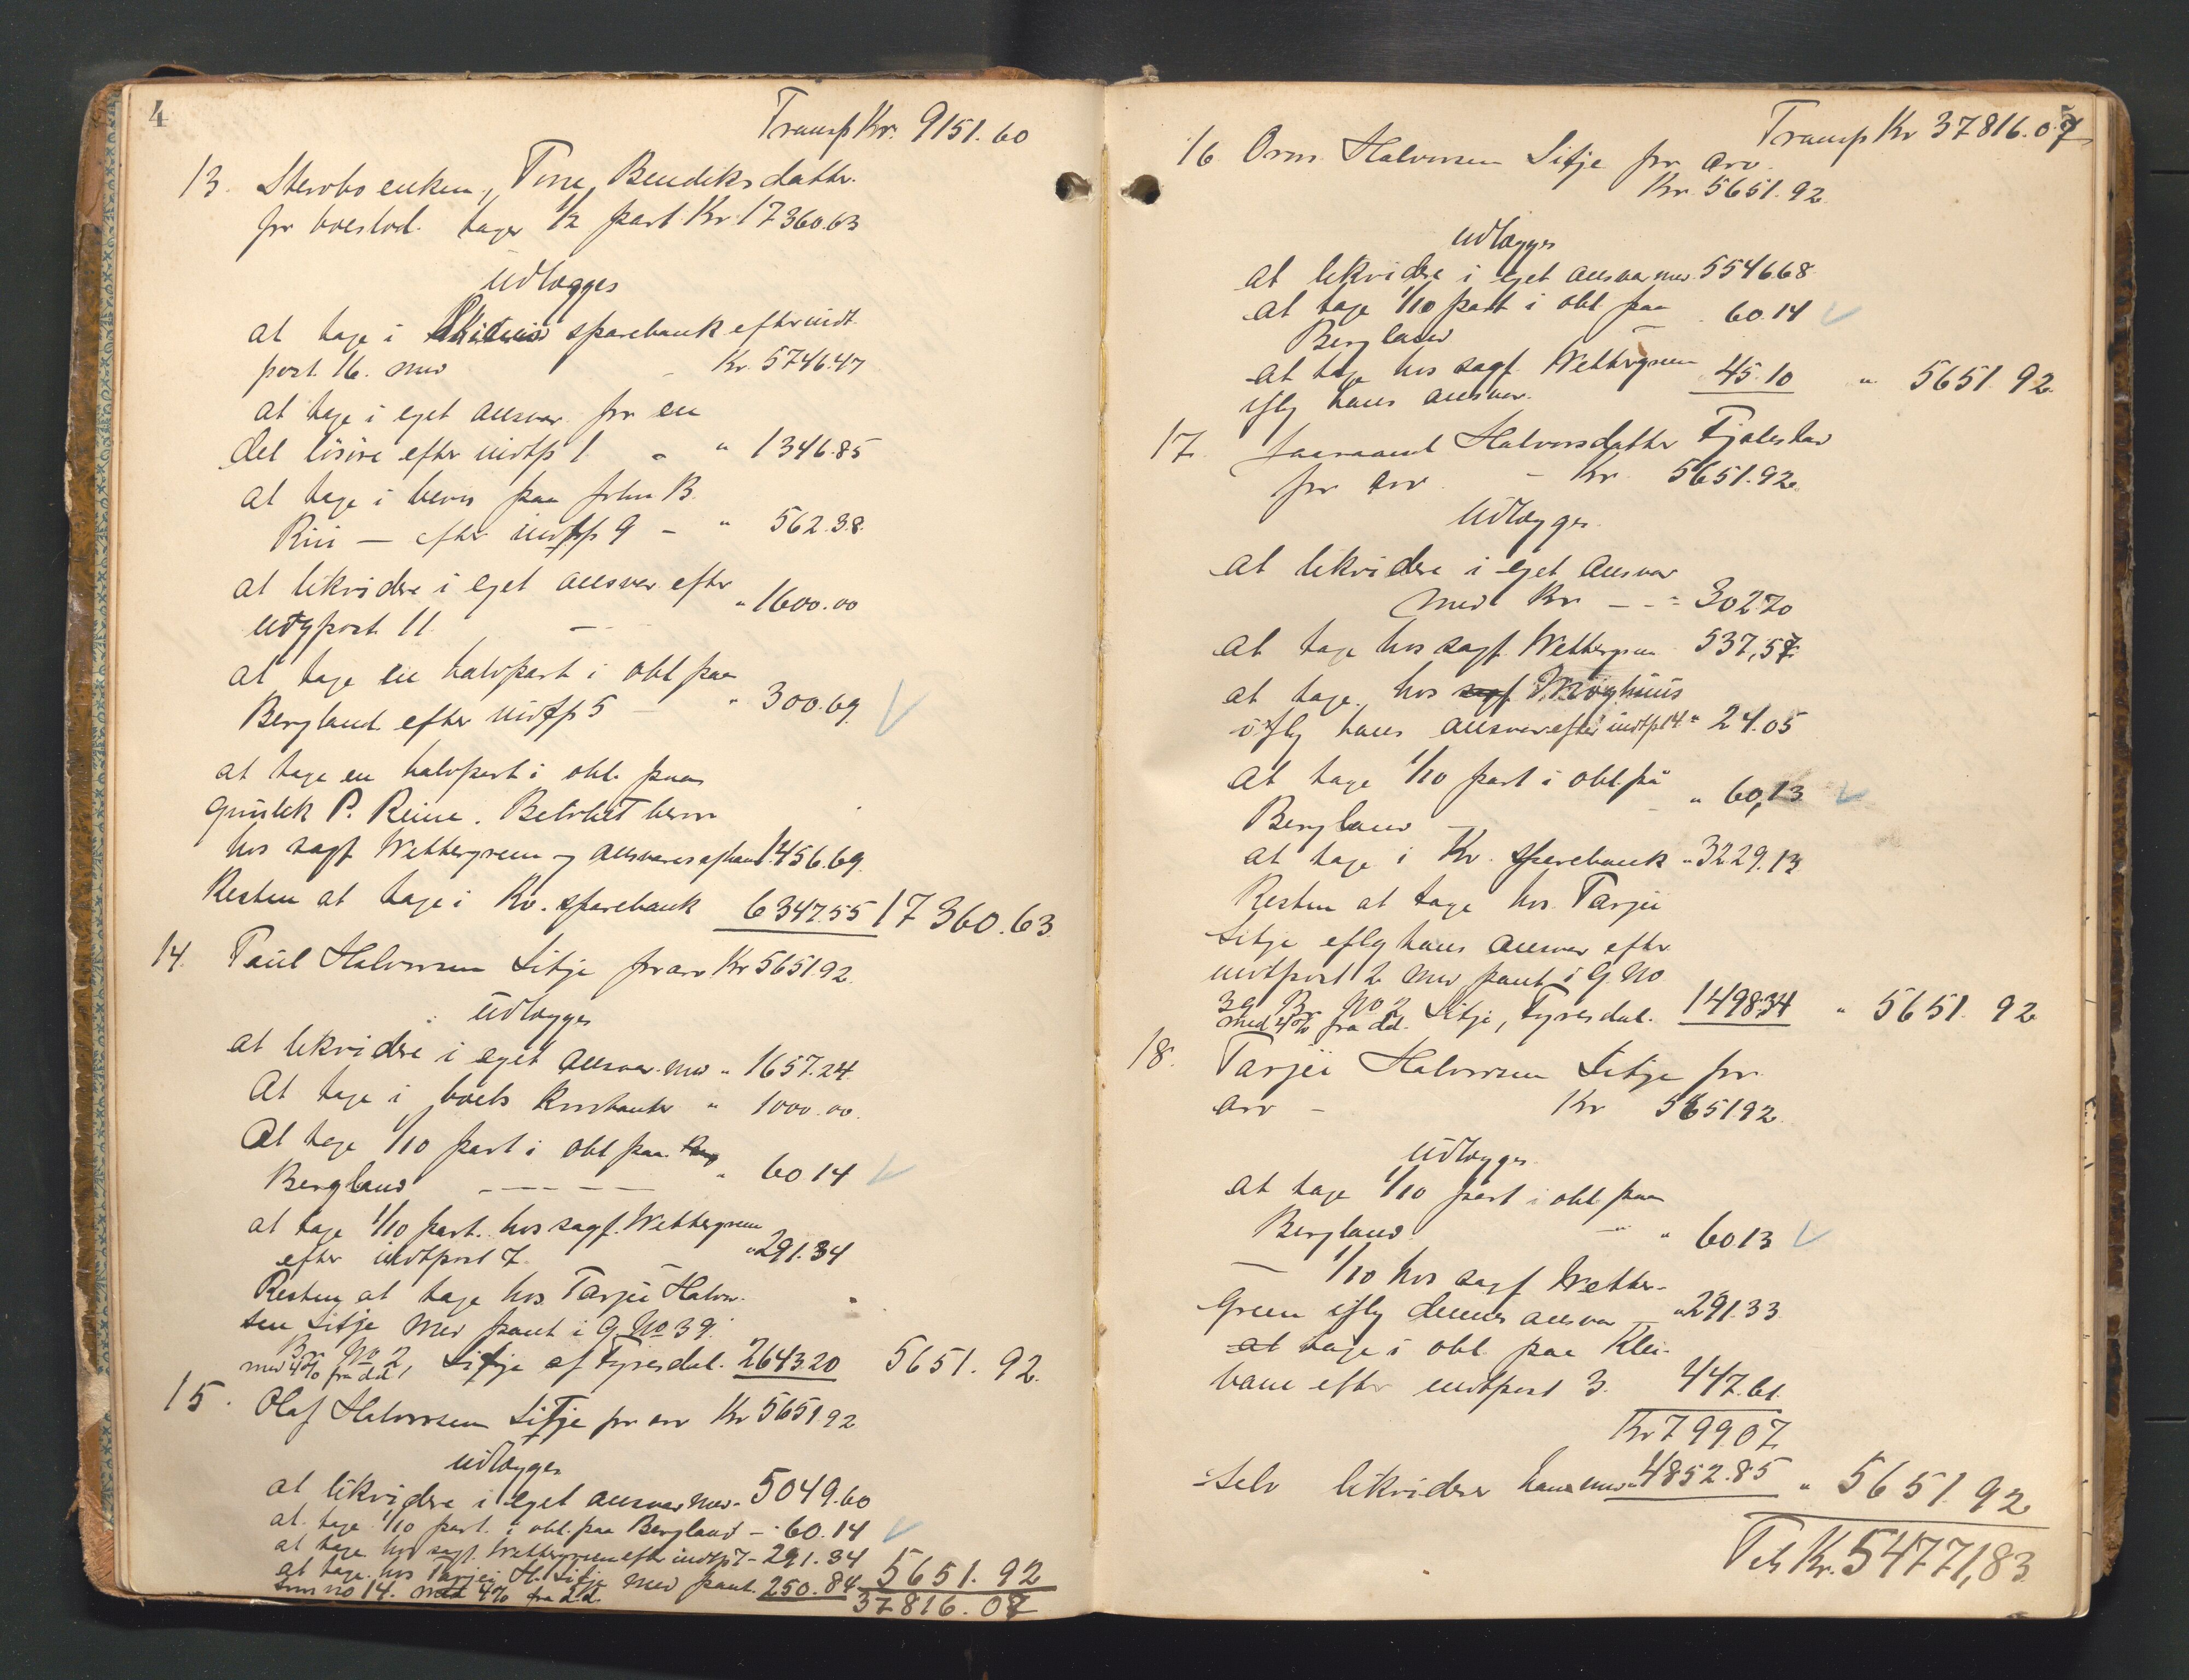 4
Transp Kr. 9151.60
13. Stervbo enken, Tone Bendiksdatter.
for boeslod. tager 1/2 part Kr. 17360.63
Udlægges
at tage i sparebank efter indt.
post. 16. med - Kr. 5746.47
at tage i eget ansvar for en
del lösöre efter indtp 1 - " 1346.85
at tage i bevis paa John B.
Rui — efter indtp 9 - " 562.38.
at likvidere i eget ansvar efter
udgpost 11. - " 1600.00
at tage en halvpart i obl paa
Bergland efter indtp 5 - " 300.69
at tage en halvpart i obl. paa
Gunlek P. Reine. Belöbet bero
hos sagf Wettergreen og ansvares af ham 1456.69.
Resten at tage i Kv. sparebank 6347.55 17360.63
14. Paul Halvorsen Litje for arv Kr 5651.92.
Udlægges
at likvidere i eget ansvar. med " 1657.24.
At tage i boets kontanter " 1000.00.
At tage 1/10 part i obl paa
Bergland - - - - " 60.14
at tage 1/10 part. hos sagf. Wettergreen
efter indtpost 7. - " 291.34
Resten at tage hos Tarjei Halvor-
sen Litje med pant i G. No 39.
Br No 2, Litje af Tyresdal. 2643.20 5651.92.
med 4% fra d.d.
15. Olaf Halvorsen Litje for arv Kr 5651.92
Udlægges
at likvidere i eget ansvar med - 5049.60
at tage 1/10 part. i obl. paa Bergland - " 60.14
at tage hos sagf. Wettergreen efter indtp 7 - 291.34
at tage hos Tarjei H. Litje med pant. 250.84 5651.92
som no 14. med 4% fra d.d. 37816.07
5
Transp Kr 37816.07
16. Orm Halvorsen Litje for arv.
Kr. 5651.92.
Udlægges
at likvidere i eget ansvar med. 5546.68.
at tage 1/10 part i obl paa
Bergland - " 60.14
at tage hos sagf. Wettergreen
iflg hans ansvar. 45.10 " 5651.92.
17. Halvorsdatter
for arv. - Kr. 5651.92.
Udlægges.
at likvidere i eget ansvar
med Kr - - " 302.70
at tage hos sagf. Wettergreen 537,57.
at tage. hos sagf
iflg hans ansvar efter indtp 14 " 24.05
at tage 1/10 part i obl. på
Bergland - " 60,13
at tage i Kv. sparebank " 3229.13
Resten at tage hos Tarjei
Litje iflg hans ansvar efter
indtpost 2 med pant i G. No
39 Br No 2 Litje, Tyresdal. 1498.34 " 5651.92
med 4% fra dd.
18. Tarjei Halvorsen Litje for
arv - Kr 5651.92.
Udlægges.
at tage 1/10 part i obl. paa
Bergland. - " 60.13
— 1/10 hos sagf Wetter-
green iflg dennes ansvar - " 291.33.
at tage i obl paa Klei-
vane efter indtpost 3. 447.61.
Kr 799.07
Selv likviderer han med " 4852.85 " 5651.92
Tils Kr. 54771,83.